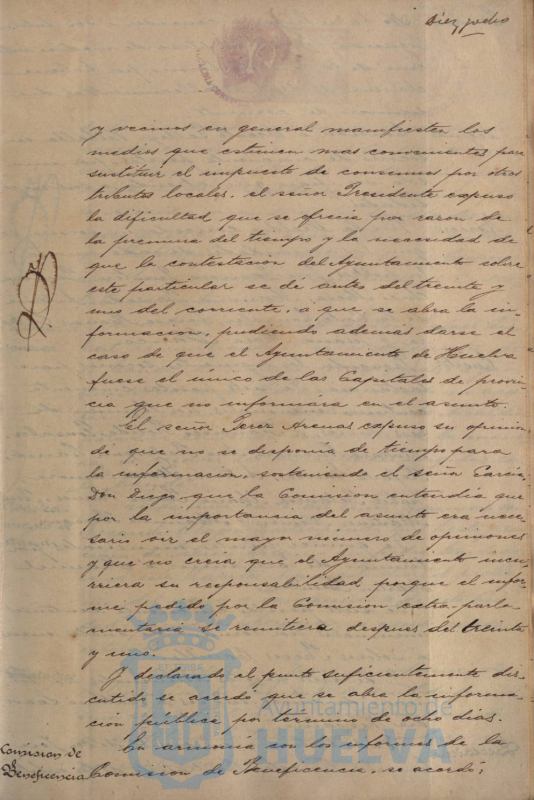 Diez y ocho
y vecinos en general manifiesten los
medios que estimen mas convenientes para
sustituir el impuesto de consumos por otros
tributos locales. el señor Presidente espuso
la dificultad que se ofrecia por razon de
la premura del tiempo y la necesidad de
que la contestasion del Ayuntamiento sobre
este particular se dé antes del treinta y
uno del corriente, á que se abra la in-
formacion, pudiendo además darse el
caso de que el Ayuntamiento de Huelva
fuese el único de las Capitales de provin-
cia que no informára en el asunto.
El señor Perez Arenas espuso su opinion
de que no se disponia de tiempo para
la informacion, sosteniendo el señor Garcia,
Don Diego que la Comision entendia que
por la importancia del asunto era nece-
sario oir el mayor número de opiniones
y que no creia que el Ayuntamiento incu-
rriera en responsabilidad porque el infor-
me pedido por la Comision extra-parla-
mentaria se remitiera despues del treinta
y uno.
Y declarado el punto suficientemente dis-
cutido se acordó que se abra la informa-
cion pública por término de ocho dias.
Comision de
Beneficencia
En armonia con los informes de la
Comision de Beneficencia, se acordó:
Ayuntamiento de
HUELVA